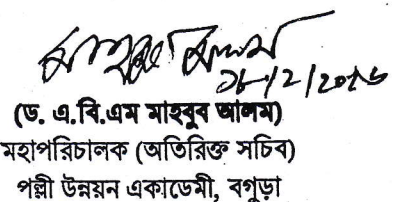 (ড. এ.বি.এম মাহবুব আলম)
মহাপরিচালক (অতিরিক্ত সচিব)
পল্লী উন্নয়ন একাডেমী, বগুড়া